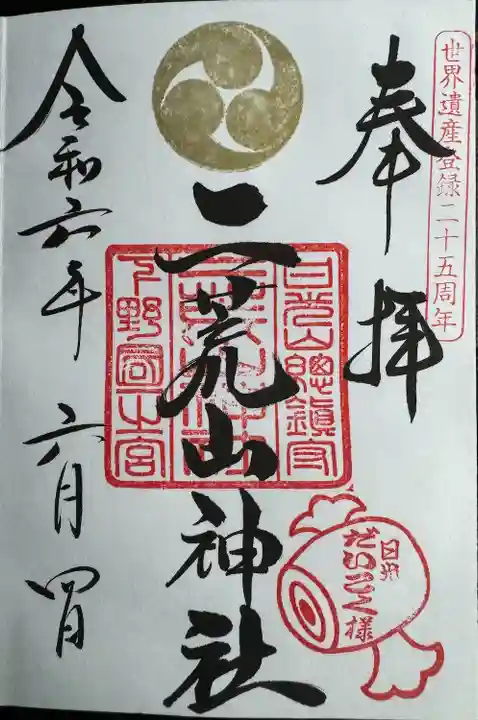 世界遺産登録二十五周年
奉拝
日光山總鎮守
二荒山神社
下野國一之宮
二荒山神社
日光
だいこく様
令和六年 六月 四日